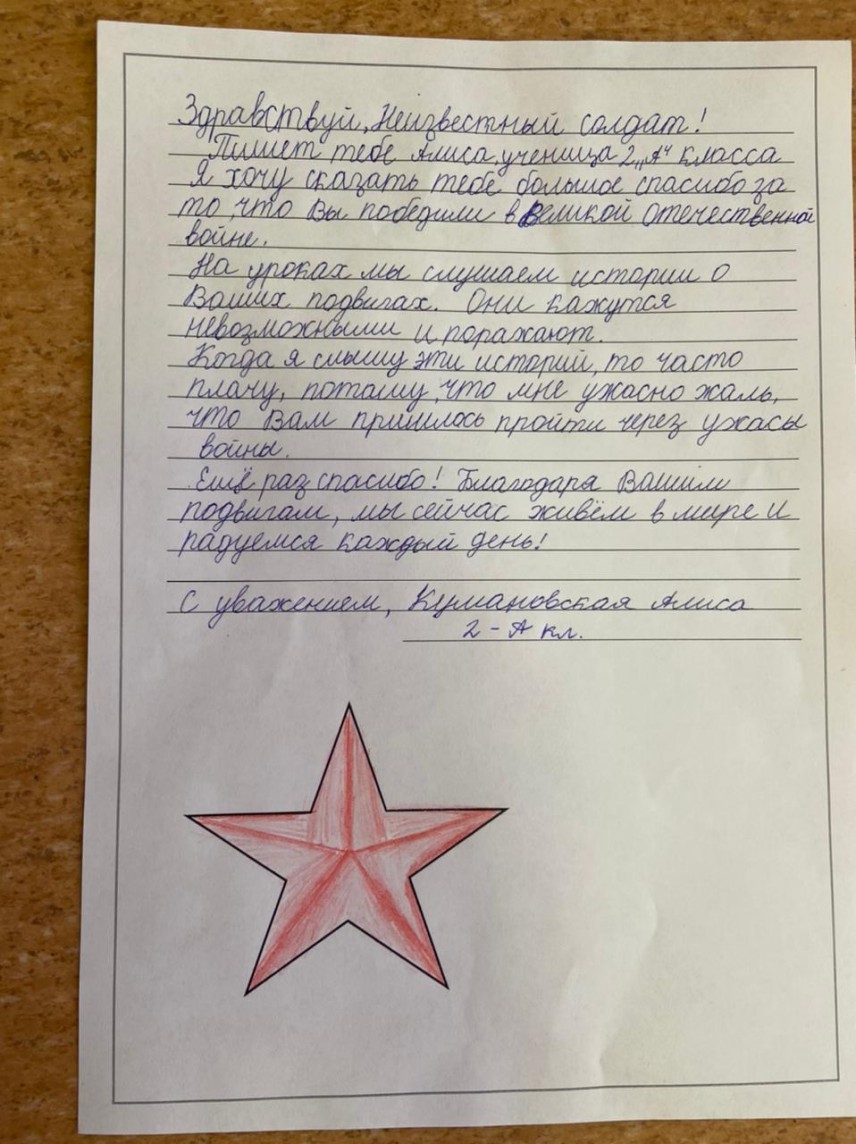 Здравствуй, Неизвестный солдат!
Пишет тебе Алиса, ученица 2 „А“ класса
Я хочу сказать тебе большое спасибо за
то, что Вы победили в Великой Отечественной
войне.
На уроках мы слушаем истории о
Ваших подвигах. Они кажутся
невозможными и поражают.
Когда я слышу эти историй, то часто
плачу, потому, что мне ужасно жаль,
что Вам пришлось пройти через ужасы
войны.
Ешё раз спасибо! Благодаря Вашим
подвигам, мы сейчас живём в мире и
радуемся каждый день!
С уважением, Кумановская Алиса
2 - А кл.